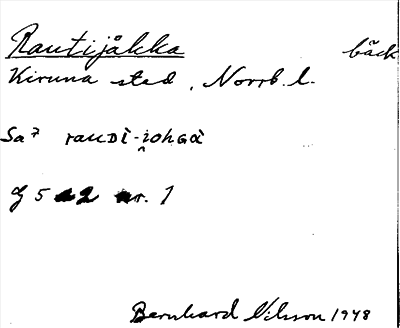 Rautijåkka bäck
Kiruna stad, Norrb. l.
Sa7 rauDi-i̭ohGà
G 5 2 nr. 1
Bernhard Nilsson 1948